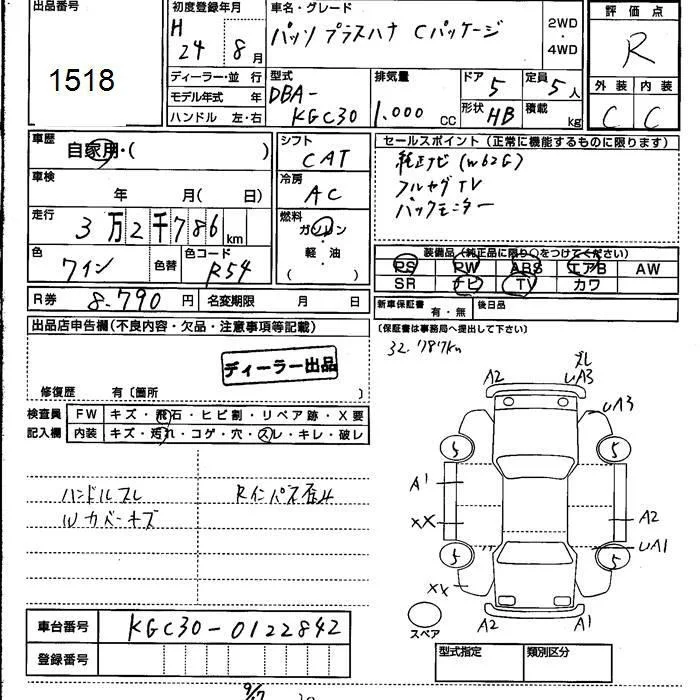 出品番号
1518
初度登録年月
H 24 8月
車名・グレード
パッソ プラスハナ Cパッケージ
2WD
・
4WD
評価点
R
ディーラー・並行
モデル年式 年
ハンドル 左・右
型式
DBA-
KGC30
排気量
1.000 cc
ドア 5
定員 5人
形状 HB
積載 kg
外装 内装
C C
車歴
自家用・( )
車検
年 月( 日)
走行
3万2千786km
色
ワイン
色替
色コード
R54
シフト
CAT
冷房
AC
燃料
ガソリン
・
軽・油
( )
セールスポイント(正常に機能するものに限ります)
純正ナビ(W62G)
フルセグTV
バックモニター
装備品(純正品に限り○をつけてください)
PS PW ABS エアB AW
SR ナビ TV カワ
R券 8.790円
名変期限 月 日
新車保証書 有・無
後日品
(保証書は事務局へ提出して下さい)
32.787km
出品店申告欄(不良内容・欠品・注意事項等記載)
ディーラー出品
修復歴 有〔箇所 〕
検査員
記入欄
FW キズ・飛石・ヒビ割・リペア跡・X要
内装 キズ・汚れ・コゲ・穴・スレ・キレ・破レ
ハンドルスレ
Wカバーキズ
Rインパネ歪み
A2
スレ
UA3
UA3
5 5
A1
XX
A2
UA1
5 5
XX
A2 A1
スペア
車台番号 KGC30-0122842
登録番号
型式指定 類別区分